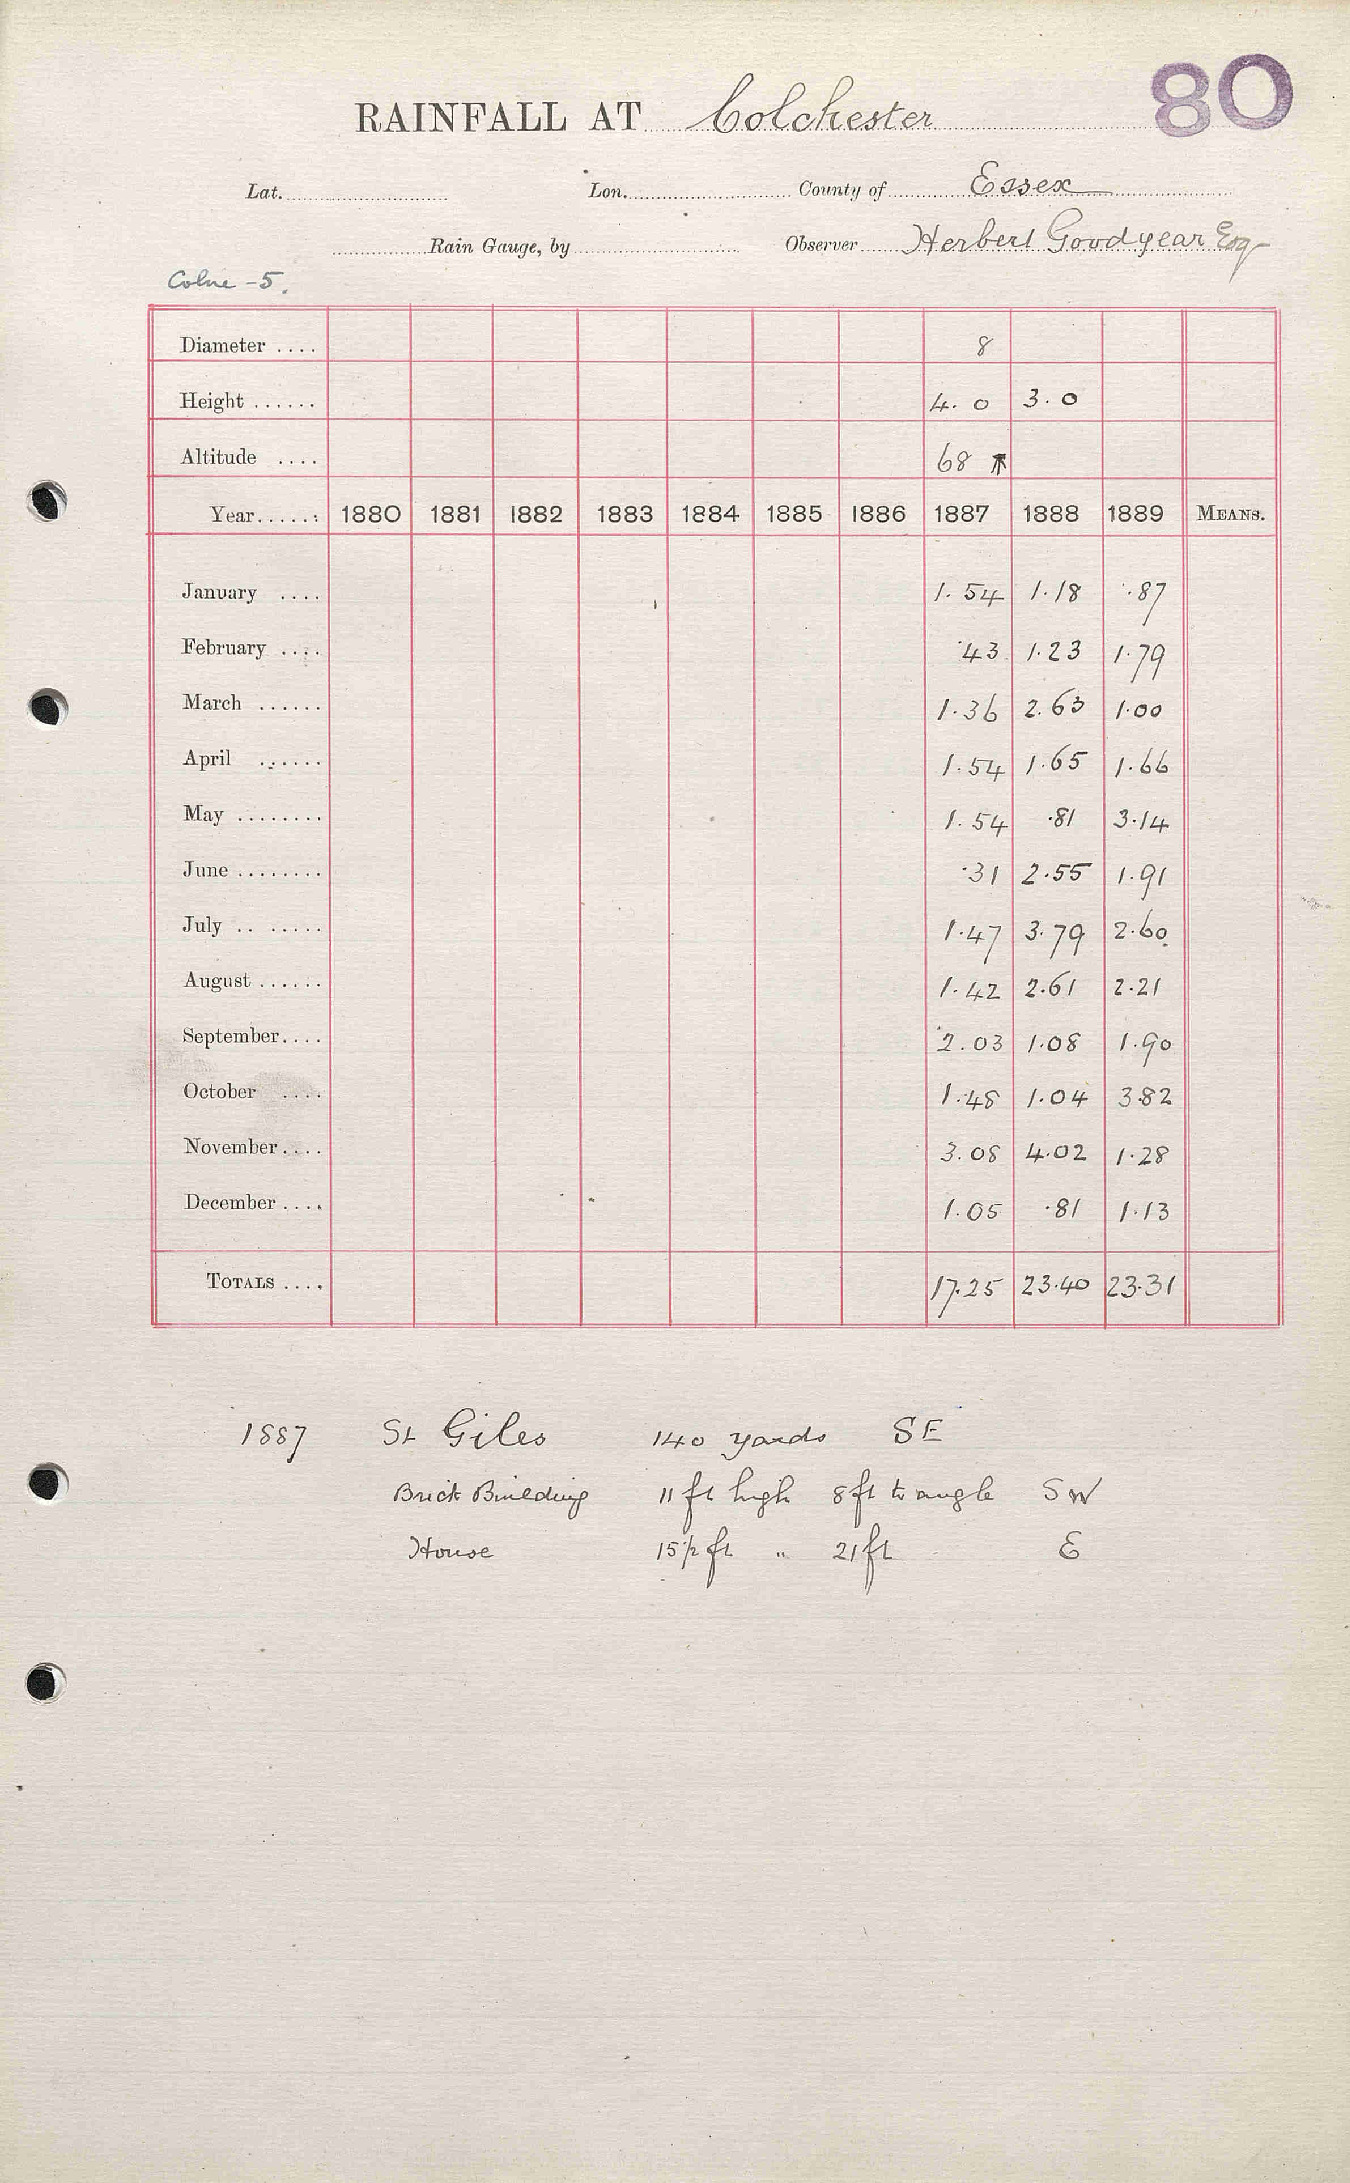 80
RAINFALL AT Colchester
Lat. Lon. County of Essex
Rain Gauge, by Observer Herbert Goodyear Esq
Colne - 5.
Diameter .... 8
Height ...... 4. 0 3. 0
Altitude .... 68
Year...... 1880 1881 1882 1883 1884 1885 1886 1887 1888 1889 MEANS.
January .... 1.54 1.18 .87
February .... .43 1.23 1.79
March ...... 1.36 2.63 1.00
April ...... 1.54 1.65 1.66
May ........ 1.54 .81 3.14
June ........ .31 2.55 1.91
July .. ..... 1.47 3.79 2.60
August ...... 1.42 2.61 2.21
September.... 2.03 1.08 1.90
October .... 1.48 1.04 3.82
November.... 3.08 4.02 1.28
December.... 1.05 .81 1.13
TOTALS .... 17.25 23.40 23.31
1887 St Giles 140 yards SE
Brick Building 11 ft high 8 ft to angle SW
House 15½ ft " 21 ft E